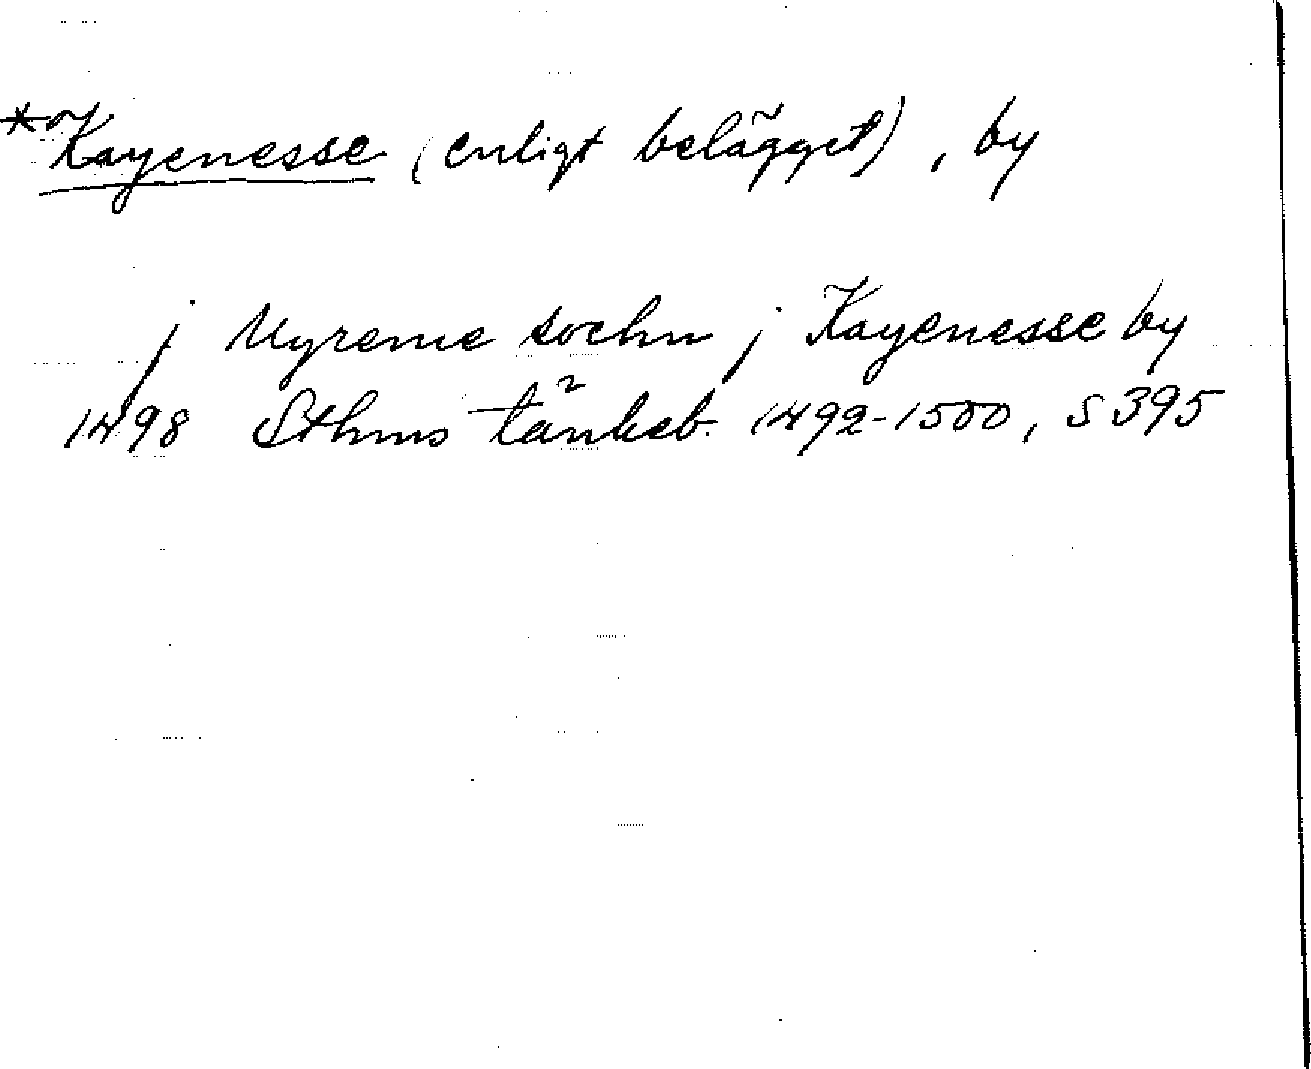 *Kayenesse (enligt belägget), by
j Uyreme sochn j Kayenesse by
1498 Sthms tänkeb. 1492-1500, s 395